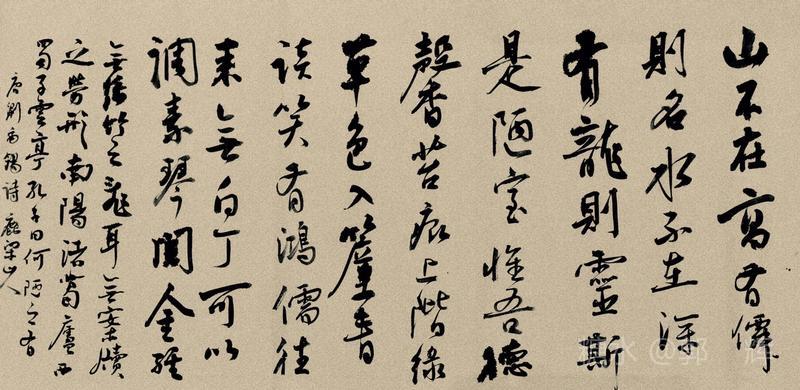 山不在高有僊
則名水不在深
有龍則靈斯
是陋室惟吾德
馨苔痕上階綠
草色入簾青
談笑有鴻儒往
来無白丁可以
調素琴閱金經
無絲竹之亂耳無案牘
之勞形南陽諸葛廬西
蜀子雲亭孔子曰何陋之有
唐劉禹錫詩 山人
@郭 辉